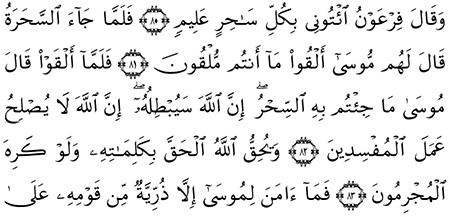 وَقَالَ فِرْعَوْنُ ٱئْتُونِى بِكُلِّ سَـٰحِرٍ عَلِيمٍ ﴿٨٠﴾ فَلَمَّا جَآءَ ٱلسَّحَرَةُ
قَالَ لَهُم مُّوسَىٰٓ أَلْقُوا۟ مَآ أَنتُم مُّلْقُونَ ﴿٨١﴾ فَلَمَّآ أَلْقَوْا۟ قَالَ
مُوسَىٰ مَا جِئْتُم بِهِ ٱلسِّحْرُ ۖ إِنَّ ٱللَّهَ سَيُبْطِلُهُۥٓ ۖ إِنَّ ٱللَّهَ لَا يُصْلِحُ
عَمَلَ ٱلْمُفْسِدِينَ ﴿٨٢﴾ وَيُحِقُّ ٱللَّهُ ٱلْحَقَّ بِكَلِمَـٰتِهِۦ وَلَوْ كَرِهَ
ٱلْمُجْرِمُونَ ﴿٨٣﴾ فَمَآ ءَامَنَ لِمُوسَىٰٓ إِلَّا ذُرِّيَّةٌ مِّن قَوْمِهِۦ عَلَىٰ